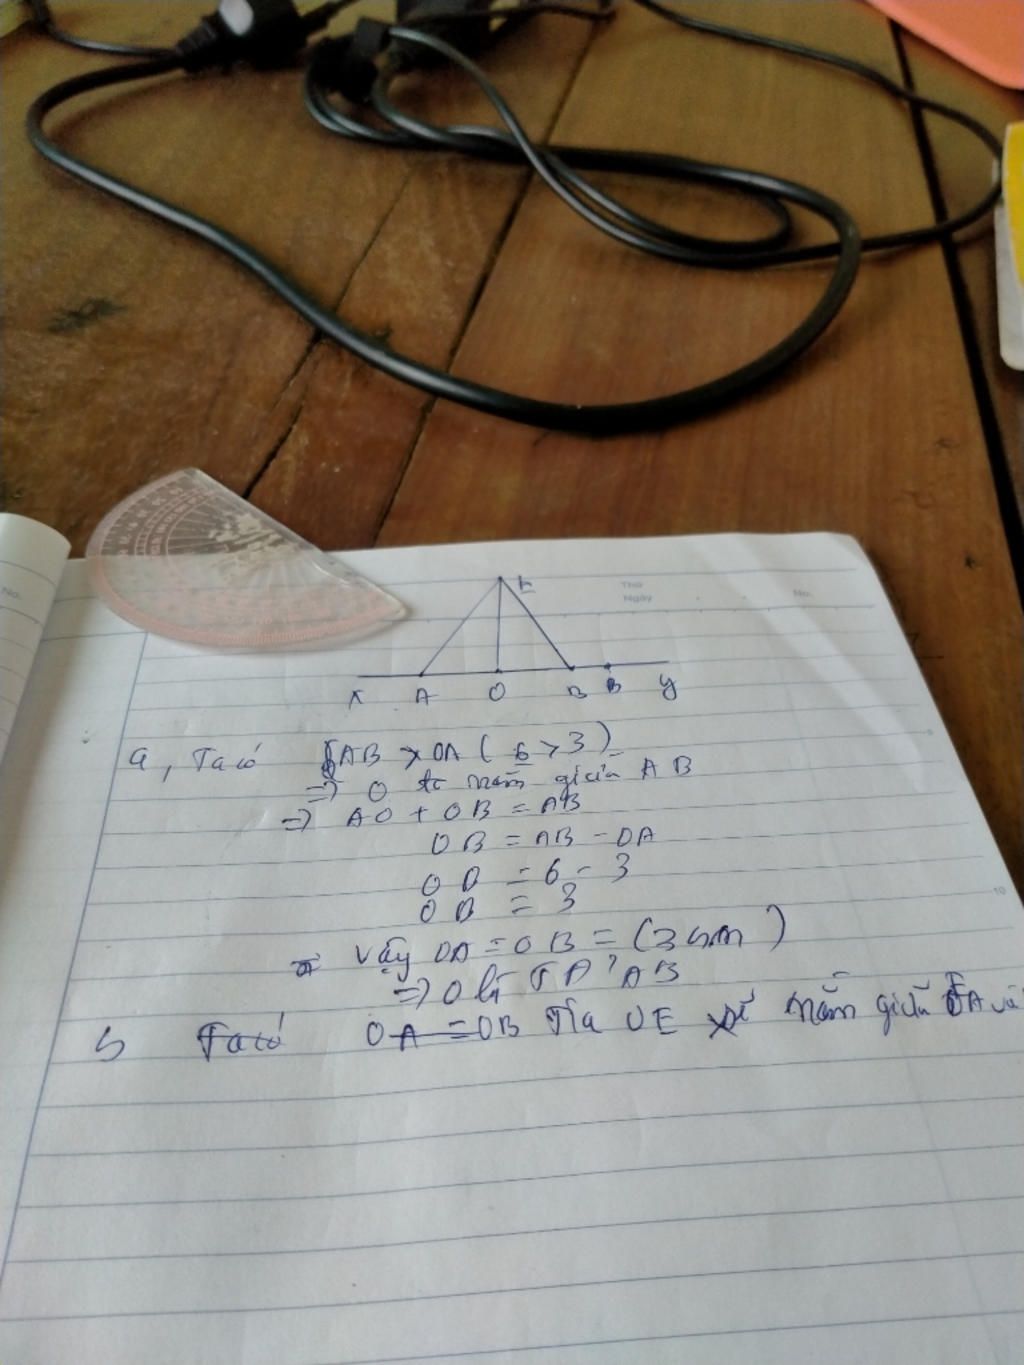 No.
Thứ
Ngày
No.
E
x A O B B y
a, Ta có AB > OA ( 6 > 3 )
=> O nằm giữa A B
=> AO + OB = AB
OB = AB - OA
OB = 6 - 3
OB = 3
Vậy OA = OB = (3 cm)
=> O là T Đ' AB
b Ta có OA = OB Tia OE nằm giữa EA và
10